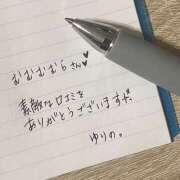 むむむむらさん♥
素敵な口コミを
ありがとうございます♡
ゆりの。